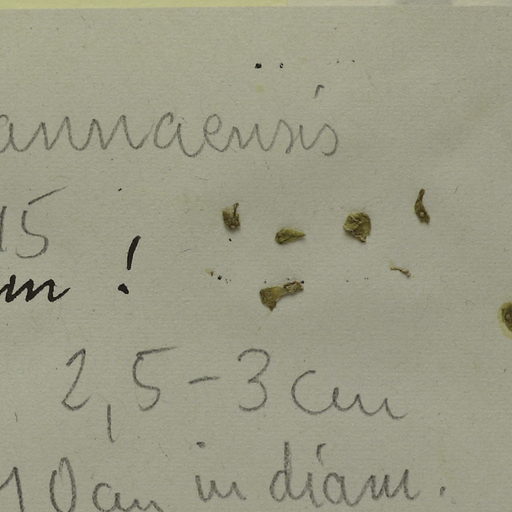 annaensis
15
m !
2,5-3 cm
10 cm in diam.